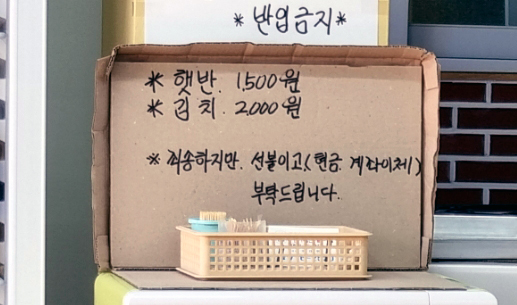 *반입금지*
* 햇반. 1,500원
* 김치. 2,000원
* 죄송하지만. 선불이고,(현금. 계좌이체)
부탁드립니다.